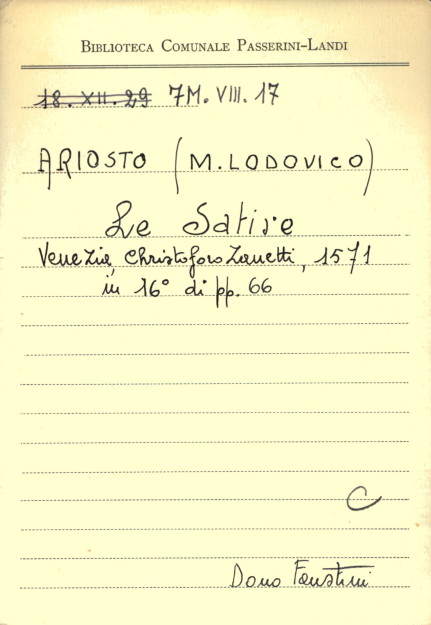 BIBLIOTECA COMUNALE PASSERINI-LANDI
18. XII. 29 7M. VIII. 17
ARIOSTO (M. LODOVICO)
Le Satire
Venezia, Christoforo Zanetti, 1571
in 16° di pp. 66
C
Dono Faustini